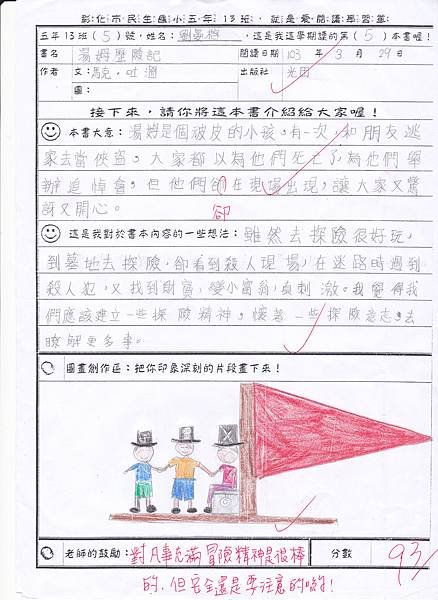 彰化市民生國小五年13班，就是愛閱讀學習單
五年13班(5)號，姓名：，這是我這學期讀的第(5)本書喔！
書名 湯姆歷險記 閱讀日期 103年3月29日
作者 文：馬克．吐溫 出版社 光田
圖：
接下來，請你將這本書介紹給大家喔！
本書大意：湯姆是個被皮的小孩，有一次，和朋友逃
家去當俠盜，大家都以為他們死亡了，為他們舉
辦追悼會，但他們在現場出現，讓大家又驚
卻
訝又開心。
這是我對於書本內容的一些想法：雖然去探險很好玩，
到墓地去探險，卻看到殺人現場，在迷路時遇到
殺人犯，又找到財寶，變小富翁，真刺激。我覺得我
們應該建立一些探險精神，懷著一些探險意志，去
瞭解更多事。
圖畫創作區：把你印象深刻的片段畫下來！
老師的鼓勵：對凡事充滿冒險精神是很棒 分數 93
的，但安全還是要注意的喲！